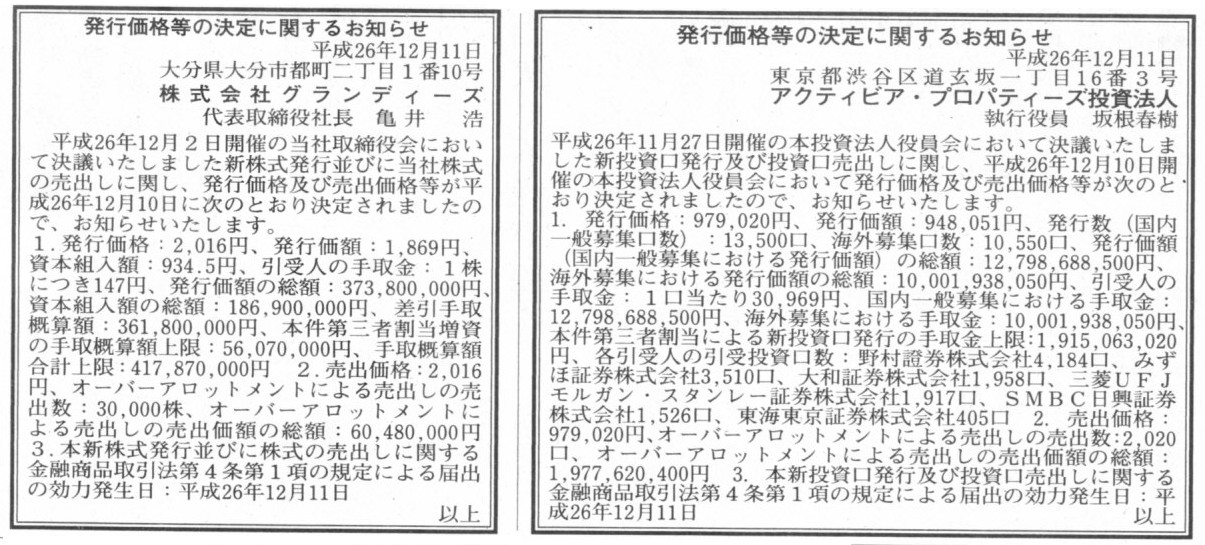 発行価格等の決定に関するお知らせ
平成26年12月11日
大分県大分市都町二丁目1番10号
株式会社グランディーズ
代表取締役社長　亀井　浩
平成26年12月2日開催の当社取締役会におい
て決議いたしました新株式発行並びに当社株式
の売出しに関し、発行価格及び売出価格等が平
成26年12月10日に次のとおり決定されましたの
で、お知らせいたします。
1．発行価格：2,016円、発行価額：1,869円、
資本組入額：934.5円、引受人の手取金：1株
につき147円、発行価額の総額：373,800,000円、
資本組入額の総額：186,900,000円、差引手取
概算額：361,800,000円、本件第三者割当増資
の手取概算額上限：56,070,000円、手取概算額
合計上限：417,870,000円　2．売出価格：2,016
円、オーバーアロットメントによる売出しの売
出数：30,000株、オーバーアロットメントに
よる売出しの売出価額の総額：60,480,000円
3．本新株式発行並びに株式の売出しに関する
金融商品取引法第4条第1項の規定による届出
の効力発生日：平成26年12月11日
以上
発行価格等の決定に関するお知らせ
平成26年12月11日
東京都渋谷区道玄坂一丁目16番3号
アクティビア・プロパティーズ投資法人
執行役員　坂根春樹
平成26年11月27日開催の本投資法人役員会において決議いたしま
した新投資口発行及び投資口売出しに関し、平成26年12月10日開
催の本投資法人役員会において発行価格及び売出価格等が次のと
おり決定されましたので、お知らせいたします。
1. 発行価格：979,020円、発行価額：948,051円、発行数（国内
一般募集口数）：13,500口、海外募集口数：10,550口、発行価額
（国内一般募集における発行価額）の総額：12,798,688,500円、
海外募集における発行価額の総額：10,001,938,050円、引受人の
手取金：1口当たり30,969円、国内一般募集における手取金：
12,798,688,500円、海外募集における手取金：10,001,938,050円、
本件第三者割当による新投資口発行の手取金上限：1,915,063,020
円、各引受人の引受投資口数：野村證券株式会社4,184口、みず
ほ証券株式会社3,510口、大和証券株式会社1,958口、三菱UFJ
モルガン・スタンレー証券株式会社1,917口、SMBC日興証券
株式会社1,526口、東海東京証券株式会社405口　2. 売出価格：
979,020円、オーバーアロットメントによる売出しの売出数：2,020
口、オーバーアロットメントによる売出しの売出価額の総額：
1,977,620,400円　3. 本新投資口発行及び投資口売出しに関する
金融商品取引法第4条第1項の規定による届出の効力発生日：平
成26年12月11日
以上